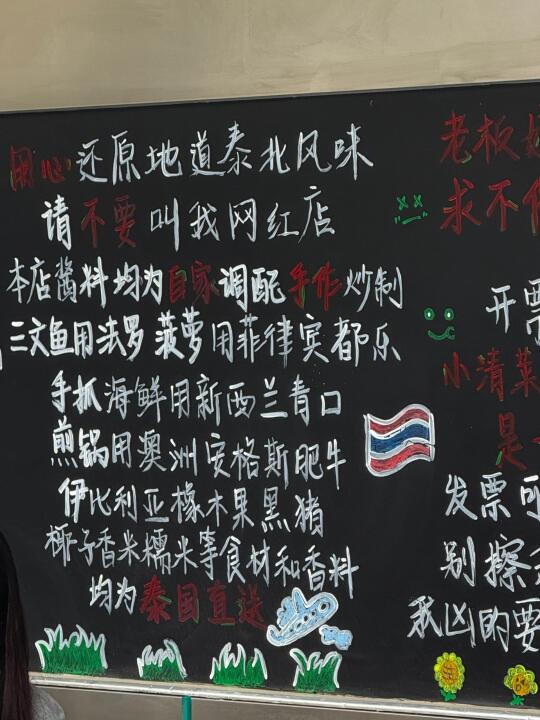 用心还原地道泰北风味
请不要叫我网红店
本店酱料均为自家调配手作炒制
三文鱼用法罗 菠萝用菲律宾都乐
手抓海鲜用新西兰青口
煎锅用澳洲安格斯肥牛
伊比利亚橡木果黑猪
椰子香米糯米等食材和香料
均为泰国直送
老板
求不
开票
小清菜
是
发票可
别擦
我凶的要